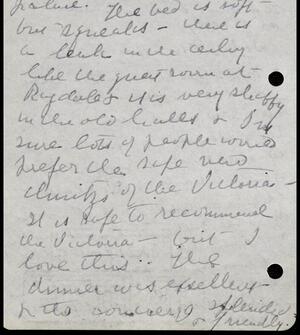 picture. The bed is soft
but squeaks – there is
a leak in the ceiling
like the guest room at
Rydale & it is very stuffy
in the old halls & I'm
sure lots of people would
prefer the safe new
of the Victoria –
It is safe to recommend
the Victoria – but I
love this. The
dinner was excellent
& the splendid
& friendly